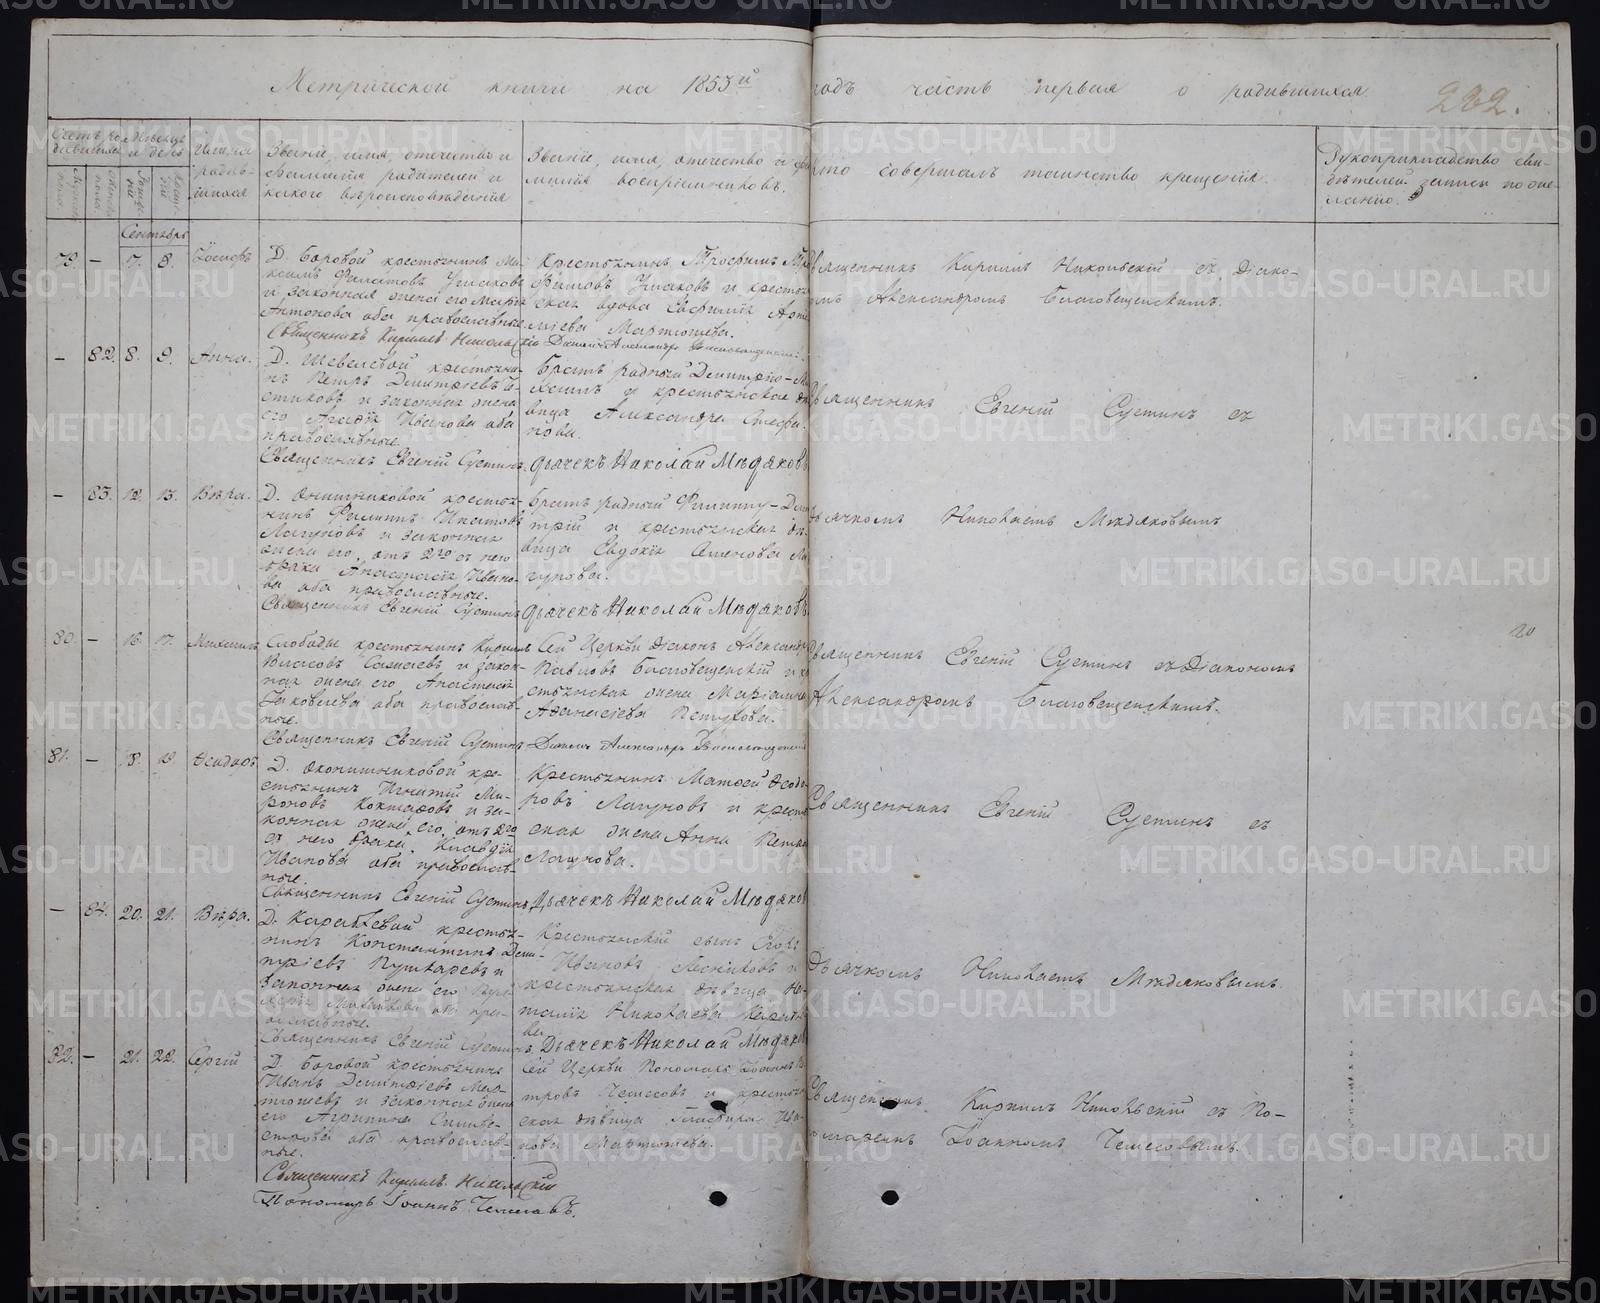 Метрической книги на 1853й годъ часть первая о родившихся 232.
Имена родившихся
Званіе, имя, отечество и фамилія родителей и какого вѣроисповѣданія
Званіе, имя, отечество и фамилія воспріемниковъ.
Кто совершалъ таинство крещенія.
Рукоприкладство свидѣтелей записи по желанію.
Сентябрь
79. — 7. 8. Іосифъ
Д. Боровой крестьянинъ Ма-
ксимъ Филатовъ Ушаковъ
и законная жена его Марья
Антонова оба православные.
Священникъ Кирилъ Никольскій
Крестьянинъ Трофимъ
Ушаковъ и крестьян-
ская вдова Евфимія Арте-
міева Мартюшева.
Діаконъ Александръ Благовещенскій
Священникъ Кирилъ Никольскій съ Діако-
номъ Александромъ Благовещенскимъ.
— 82. 8. 9. Анна.
Д. Шевелевой крестьяни-
нъ Петръ Димитріевъ
и законная жена
его Иванова оба
православные.
Священникъ Евгеній Сустинъ.
Братъ родный Димитрію — Ми-
хаилъ и крестьянская дѣ-
вица Александра Стефа-
нова.
Дьячекъ Николай Мѣдяковъ
Священникъ Евгеній Сустинъ съ
— 83. 12. 13. Вѣра.
Д. крестья-
нинъ Филиппъ Игнатовъ
Лагуновъ и законная
жена его, отъ 2го съ него
брака Анастасія Ивано-
ва оба православные.
Священникъ Евгеній Сустинъ
Братъ родный Филиппу — Дми-
трій и крестьянская дѣ-
вица Евдокія Семенова Ла-
гунова.
Дьячекъ Николай Мѣдяковъ
Дьячкомъ Николаемъ Мѣдяковымъ
80. — 16. 17. Михаилъ
Слободы крестьянинъ Кирилъ
Власовъ и закон-
ная жена его Анастасія
Яковлева оба православ-
ные.
Священникъ Евгеній Сустинъ
Сей Церкви Діаконъ Александръ
Павловъ Благовещенскій и кре-
стьянская жена Маріамна
Аѳанасіева Петухова.
Діаконъ Александръ Благовещенскій
Священникъ Евгеній Сустинъ съ Діакономъ
Александромъ Благовещенскимъ.
81. — 18. 19. Ѳеодоръ
кре-
стьянинъ Игнатій Ми-
роновъ и за-
конная жена его, отъ 2го
съ него брака, Клавдія
Иванова оба православ-
ные.
Священникъ Евгеній Сустинъ
Крестьянинъ Матѳей Ѳеодо-
ровъ Лагуновъ и крестьян-
ская жена Анна Петрова
Лагунова.
Дьячекъ Николай Мѣдяковъ
Священникъ Евгеній Сустинъ съ
— 84. 20. 21. Вѣра.
Д. Карабаевой крестья-
нинъ Константинъ Дими-
тріевъ Пушкаревъ и
законная жена его
оба пра-
вославные.
Священникъ Евгеній Сустинъ
Крестьянскій сынъ Егоръ
Ивановъ Лесниковъ и
крестьянская дѣвица На-
талія Николаева
Дьячекъ Николай Мѣдяковъ
Дьячкомъ Николаемъ Мѣдяковымъ.
82. — 21. 22. Сергій
Д. Боровой крестьянинъ
Иванъ Димитріевъ Мар-
тюшевъ и законная жена
его Агрипина Сильве-
строва оба православ-
ные.
Священникъ Кирилъ Никольскій
Пономарь Іоаннъ Чемесовъ.
Сей Церкви Пономарь Іоаннъ Пе-
тровъ Чемесовъ и крестьян-
ская дѣвица Глафира Ива-
нова Мартюшева.
Священникъ Кирилъ Никольскій съ По-
номаремъ Іоанномъ Чемесовымъ.
METRIKI.GASO-URAL.RU